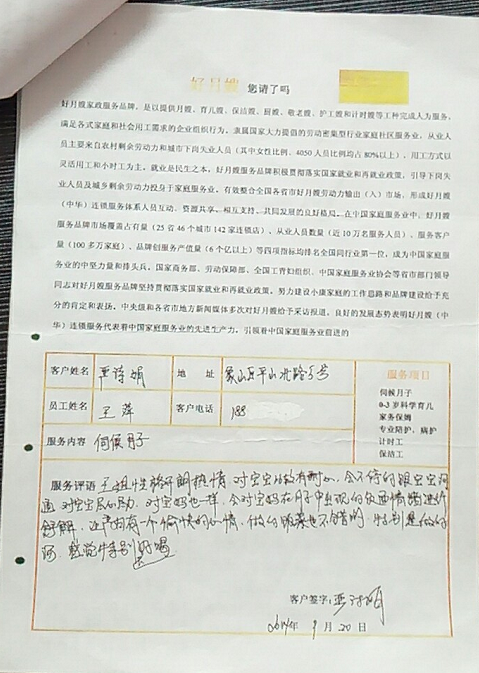 好月嫂 您请了吗
好月嫂家政服务品牌，是以提供月嫂、育儿嫂、保洁嫂、厨嫂、敬老嫂、护工嫂和计时嫂等工种完成人为服务，
满足各式家庭和社会用工需求的企业组织行为，隶属国家大力提倡的劳动密集型行业家庭社区服务业，从业人
员主要来自农村剩余劳动力和城市下岗失业人员（其中女性比例、4050人员比例均占80%以上），用工方式以
灵活用工和小时工为主，就业是民生之本，好月嫂服务品牌积极贯彻落实国家就业和再就业政策，引导下岗失
业人员及城乡剩余劳动力投身于家庭服务业，有效整合全国各省市好月嫂劳动力输出（入）市场，形成好月嫂
（中华）连锁服务体系人员互动、资源共享、相互支持、共同发展的良好格局。在中国家庭服务业中，好月嫂
服务品牌市场覆盖占有量（25省46个城市142家连锁店）、从业人员数量（近10万名服务人员）、服务客户
量（100多万家庭）、品牌创服务产值量（6个亿以上）等四项指标均排名全国同行业第一位，成为中国家庭服
务业的中坚力量和排头兵，国家商务部、劳动保障部、全国工青妇组织、中国家庭服务业协会等省市部门领导
同志对好月嫂服务品牌坚持贯彻落实国家就业和再就业政策，努力建设小康家庭的工作思路和品牌建设给予充
分的肯定和表扬，中央级和各省市地方新闻媒体多次对好月嫂给予采访报道，良好的发展态势表明好月嫂（中
华）连锁服务代表着中国家庭服务业的先进生产力，引领着中国家庭服务业前进的
客户姓名 严诗娟 地 址 象山区平山北路5号 服务项目
伺候月子
0-3岁科学育儿
家务保姆
专业陪护、病护
计时工
保洁工
员工姓名 王萍 客户电话 188
服务内容 伺候月子
服务评语 王姐性格开朗热情 对宝宝比较有耐心，会不停的跟宝宝沟
通 对宝宝 对宝妈也一样，会对宝妈在月子中出现的负面情绪进行
舒解，让产妇有一个愉快的心情，做的饭菜也不错的 特别是做的
汤，感觉特别好喝
客户签字：严诗娟
年 9 月 20 日